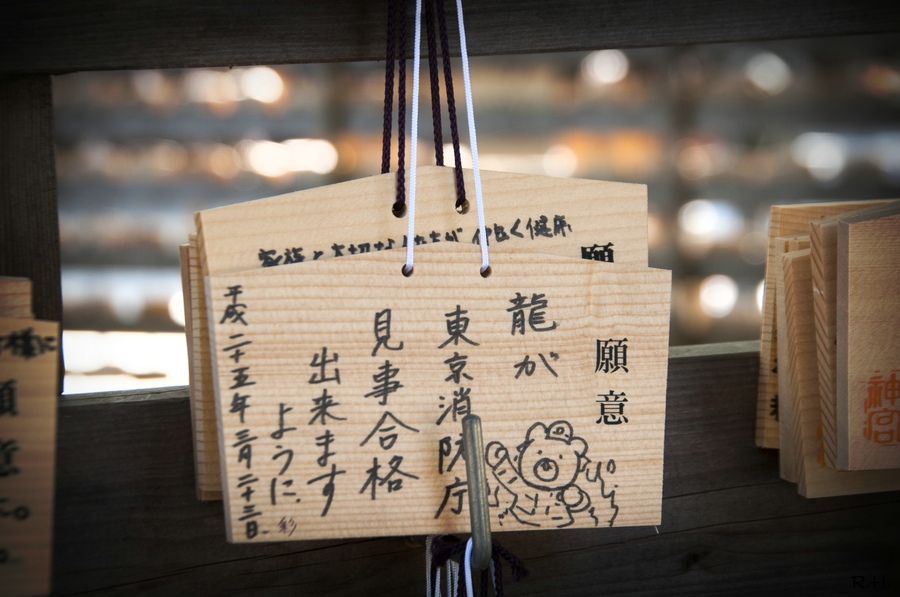 願意
龍が
東京消防庁
見事合格
出来ます
ように
彩
平成二十五年三月二十三日
願
家族と大切な人たちが 仲良く健康
神宮